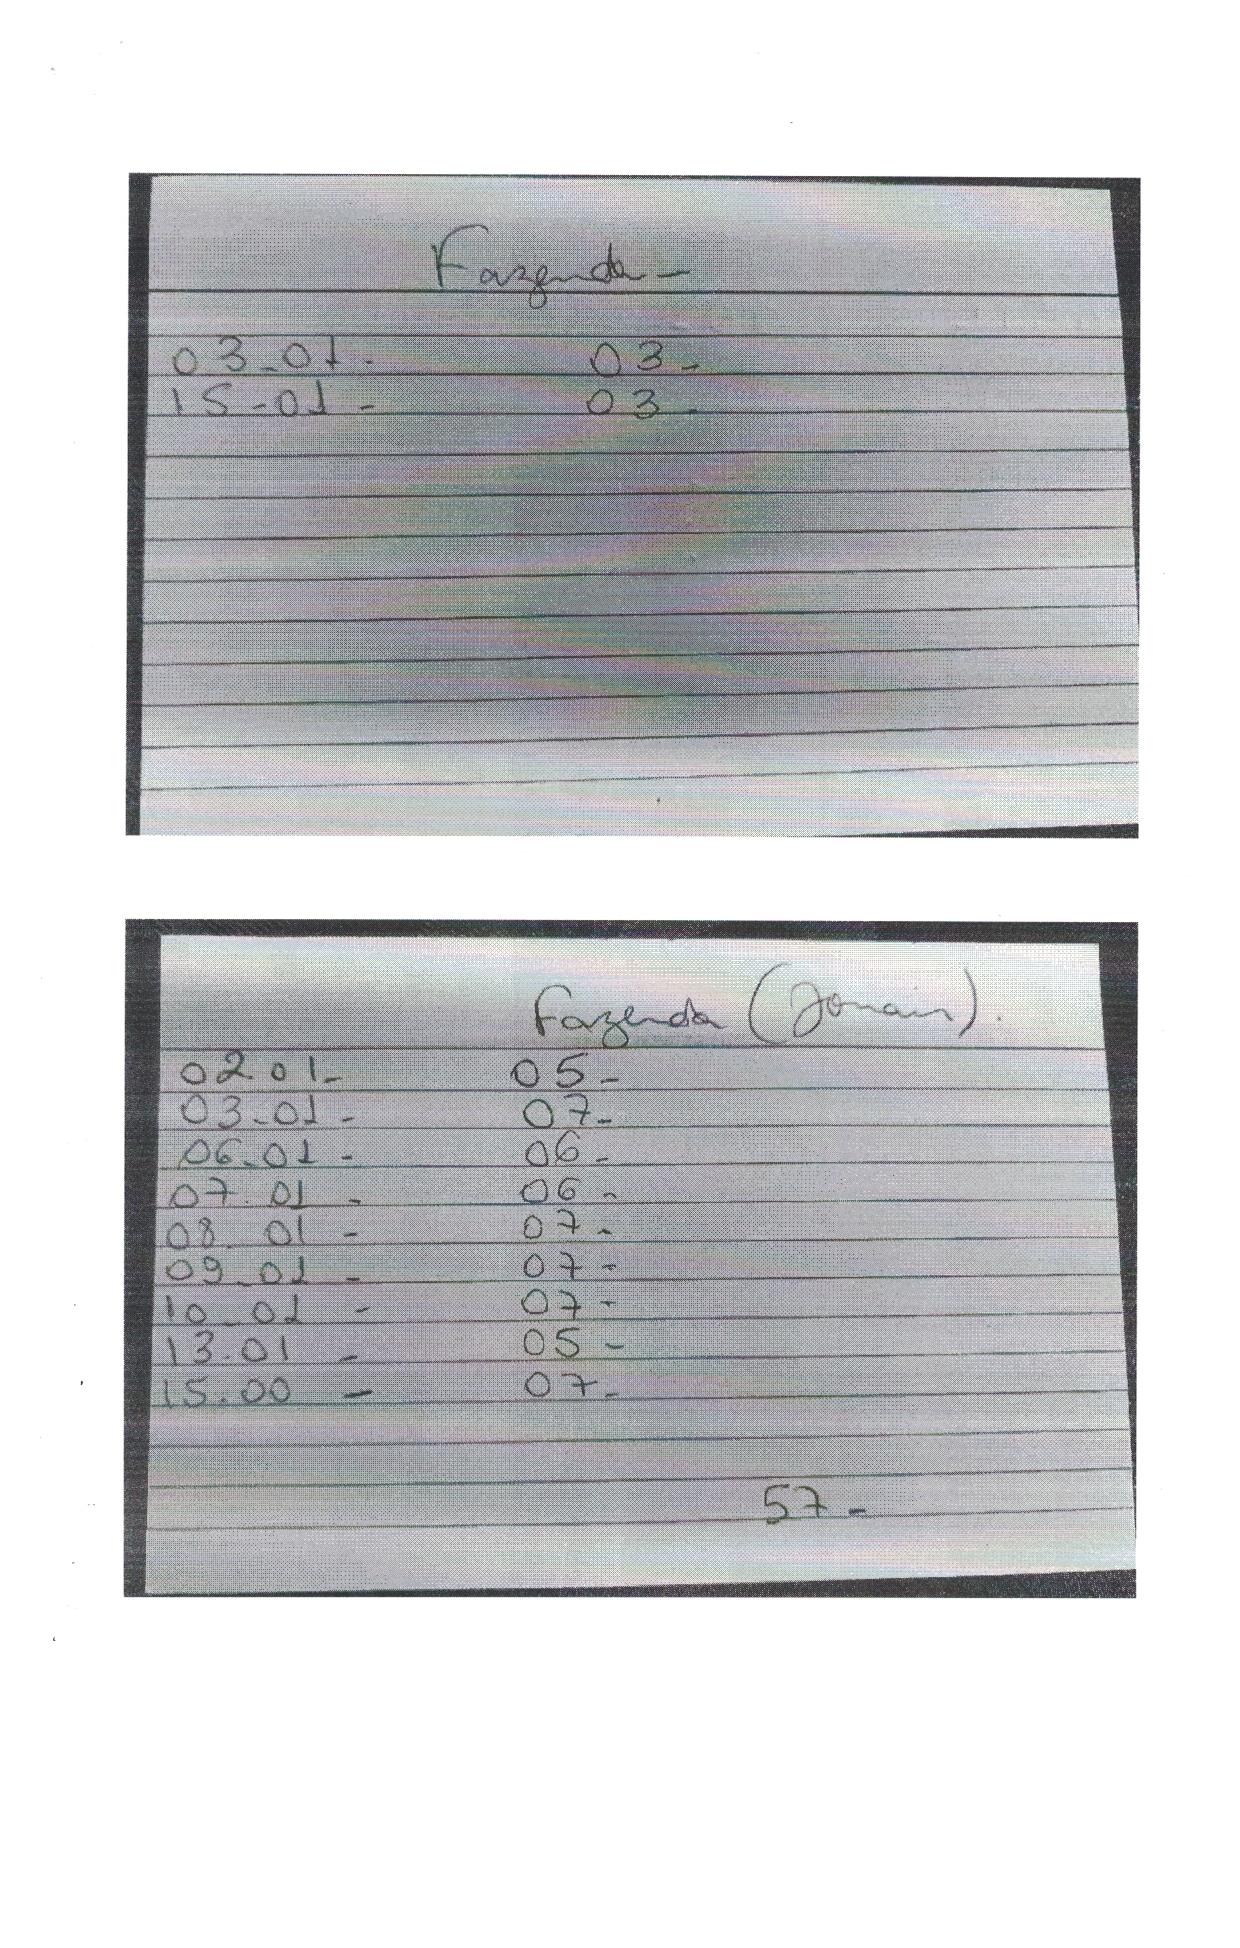 Fazenda -
03-01- 03-
15-01- 03-
Fazenda (Jomair).
02.01- 05-
03-01- 07-
06-01- 06-
07.01- 06-
08.01- 07-
09-01- 07-
10-01- 07-
13.01- 05-
15.00- 07-
57-